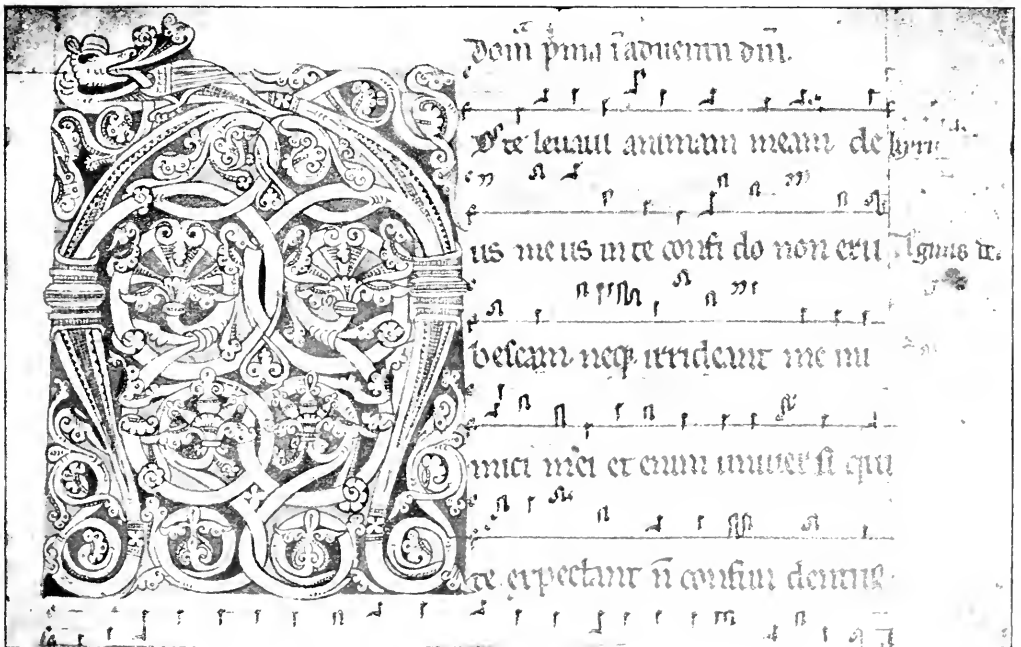 Dom̄ p̄ma ī aduentu dn̄i.
D te leuaui animam meam de kyrri
us meus in te confi do non eru Agnus de.
bescam neq irrideant me ini
mici mei et enim uniuer si qui
te expectant n̄ confun dentur